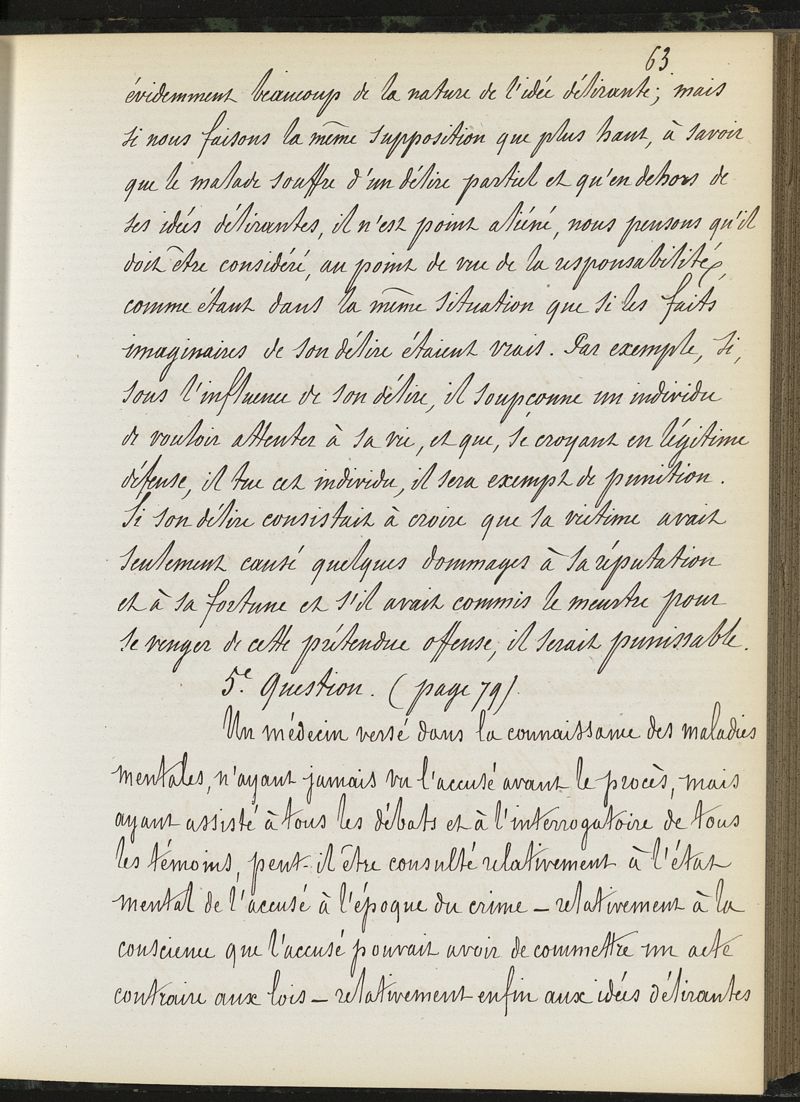 63
évidemment beaucoup de la nature de l'idée délirante; mais
si nous faisons la même supposition que plus haut, à savoir
que le malade souffre d'un délire partiel et qu'en dehors de
ses idées délirantes, il n'est point aliéné, nous pensons qu'il
doit être considéré, au point de vue de la responsabilité,
comme étant dans la même situation que si les faits
imaginaires de son délire étaient vrais. Par exemple, si,
sous l'influence de son délire, il soupçonne un individu
de vouloir attenter à sa vie, et que, se croyant en légitime
défense, il tue cet individu, il sera exempt de punition.
Si son délire consistait à croire que sa victime avait
seulement causé quelques dommages à sa réputation
et à sa fortune et s'il avait commis le meurtre pour
se venger de cette prétendue offense, il serait punissable.
5e. Question. (page 79)
Un médecin versé dans la connaissance des maladies
mentales, n'ayant jamais vu l'accusé avant le procès, mais
ayant assisté à tous les débats et à l'interrogatoire de tous
les témoins, peut-il être consulté relativement à l'état
mental de l'accusé à l'époque du crime — relativement à la
conscience que l'accusé pouvait avoir de commettre un acte
contraire aux lois — relativement enfin aux idées délirantes